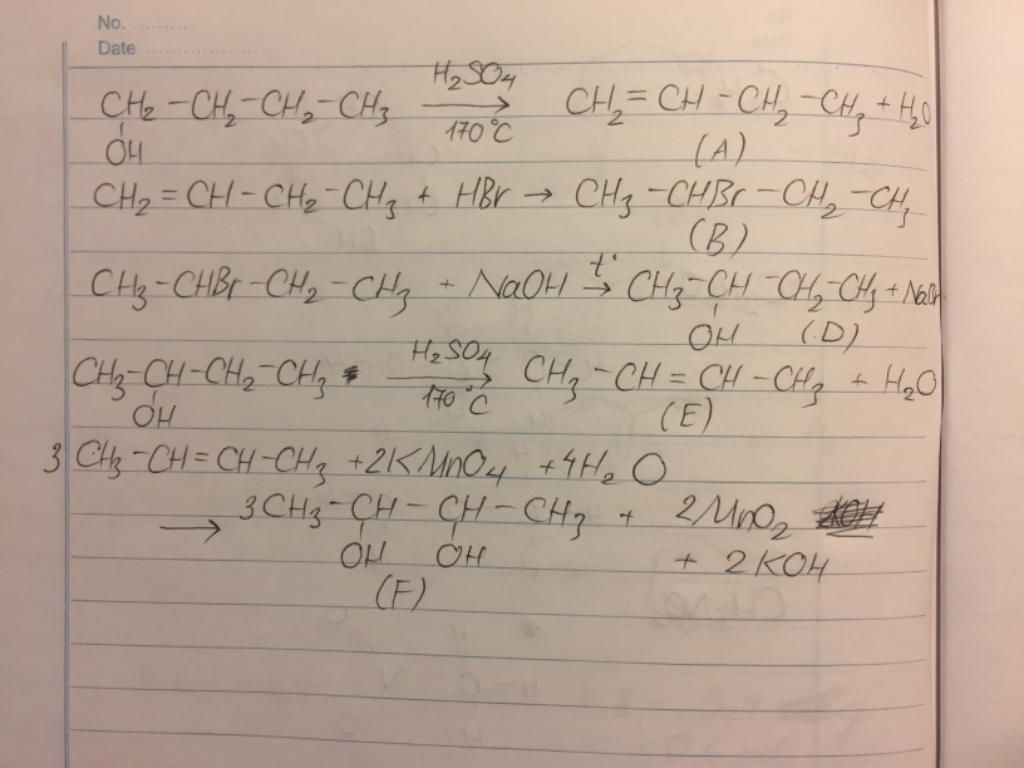 No. ..........
Date ......................
CH₂ – CH₂ – CH₂ – CH₃ →(H₂SO₄, 170°C) CH₂ = CH – CH₂ – CH₃ + H₂O
OH (A)
CH₂ = CH – CH₂ – CH₃ + HBr → CH₃ – CHBr – CH₂ – CH₃
(B)
CH₃ – CHBr – CH₂ – CH₃ + NaOH →(t°) CH₃ – CH – CH₂ – CH₃ + NaBr
OH (D)
CH₃ – CH – CH₂ – CH₃ →(H₂SO₄, 170°C) CH₃ – CH = CH – CH₃ + H₂O
OH (E)
3 CH₃ – CH = CH – CH₃ + 2KMnO₄ + 4H₂O
→ 3CH₃ – CH – CH – CH₃ + 2MnO₂
OH OH + 2KOH
(F)